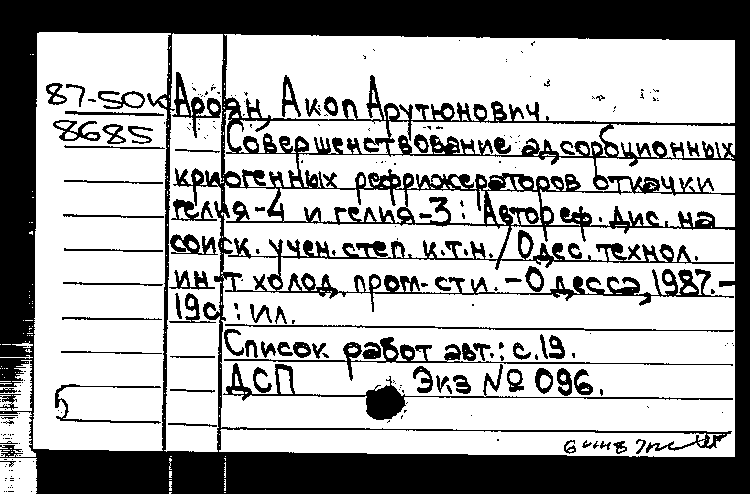 87-50к Ароян, Акоп Арутюнович.
8685 Совершенствование адсорбционных
криогенных рефрижераторов откачки
гелия-4 и гелия-3 : Автореф. дис. на
соиск. учен. степ. к.т.н. / Одес. технол.
ин-т холод. пром-сти. - Одесса, 1987. -
19с. : ил.
Список работ авт.: с.19.
ДСП Экз № 096.